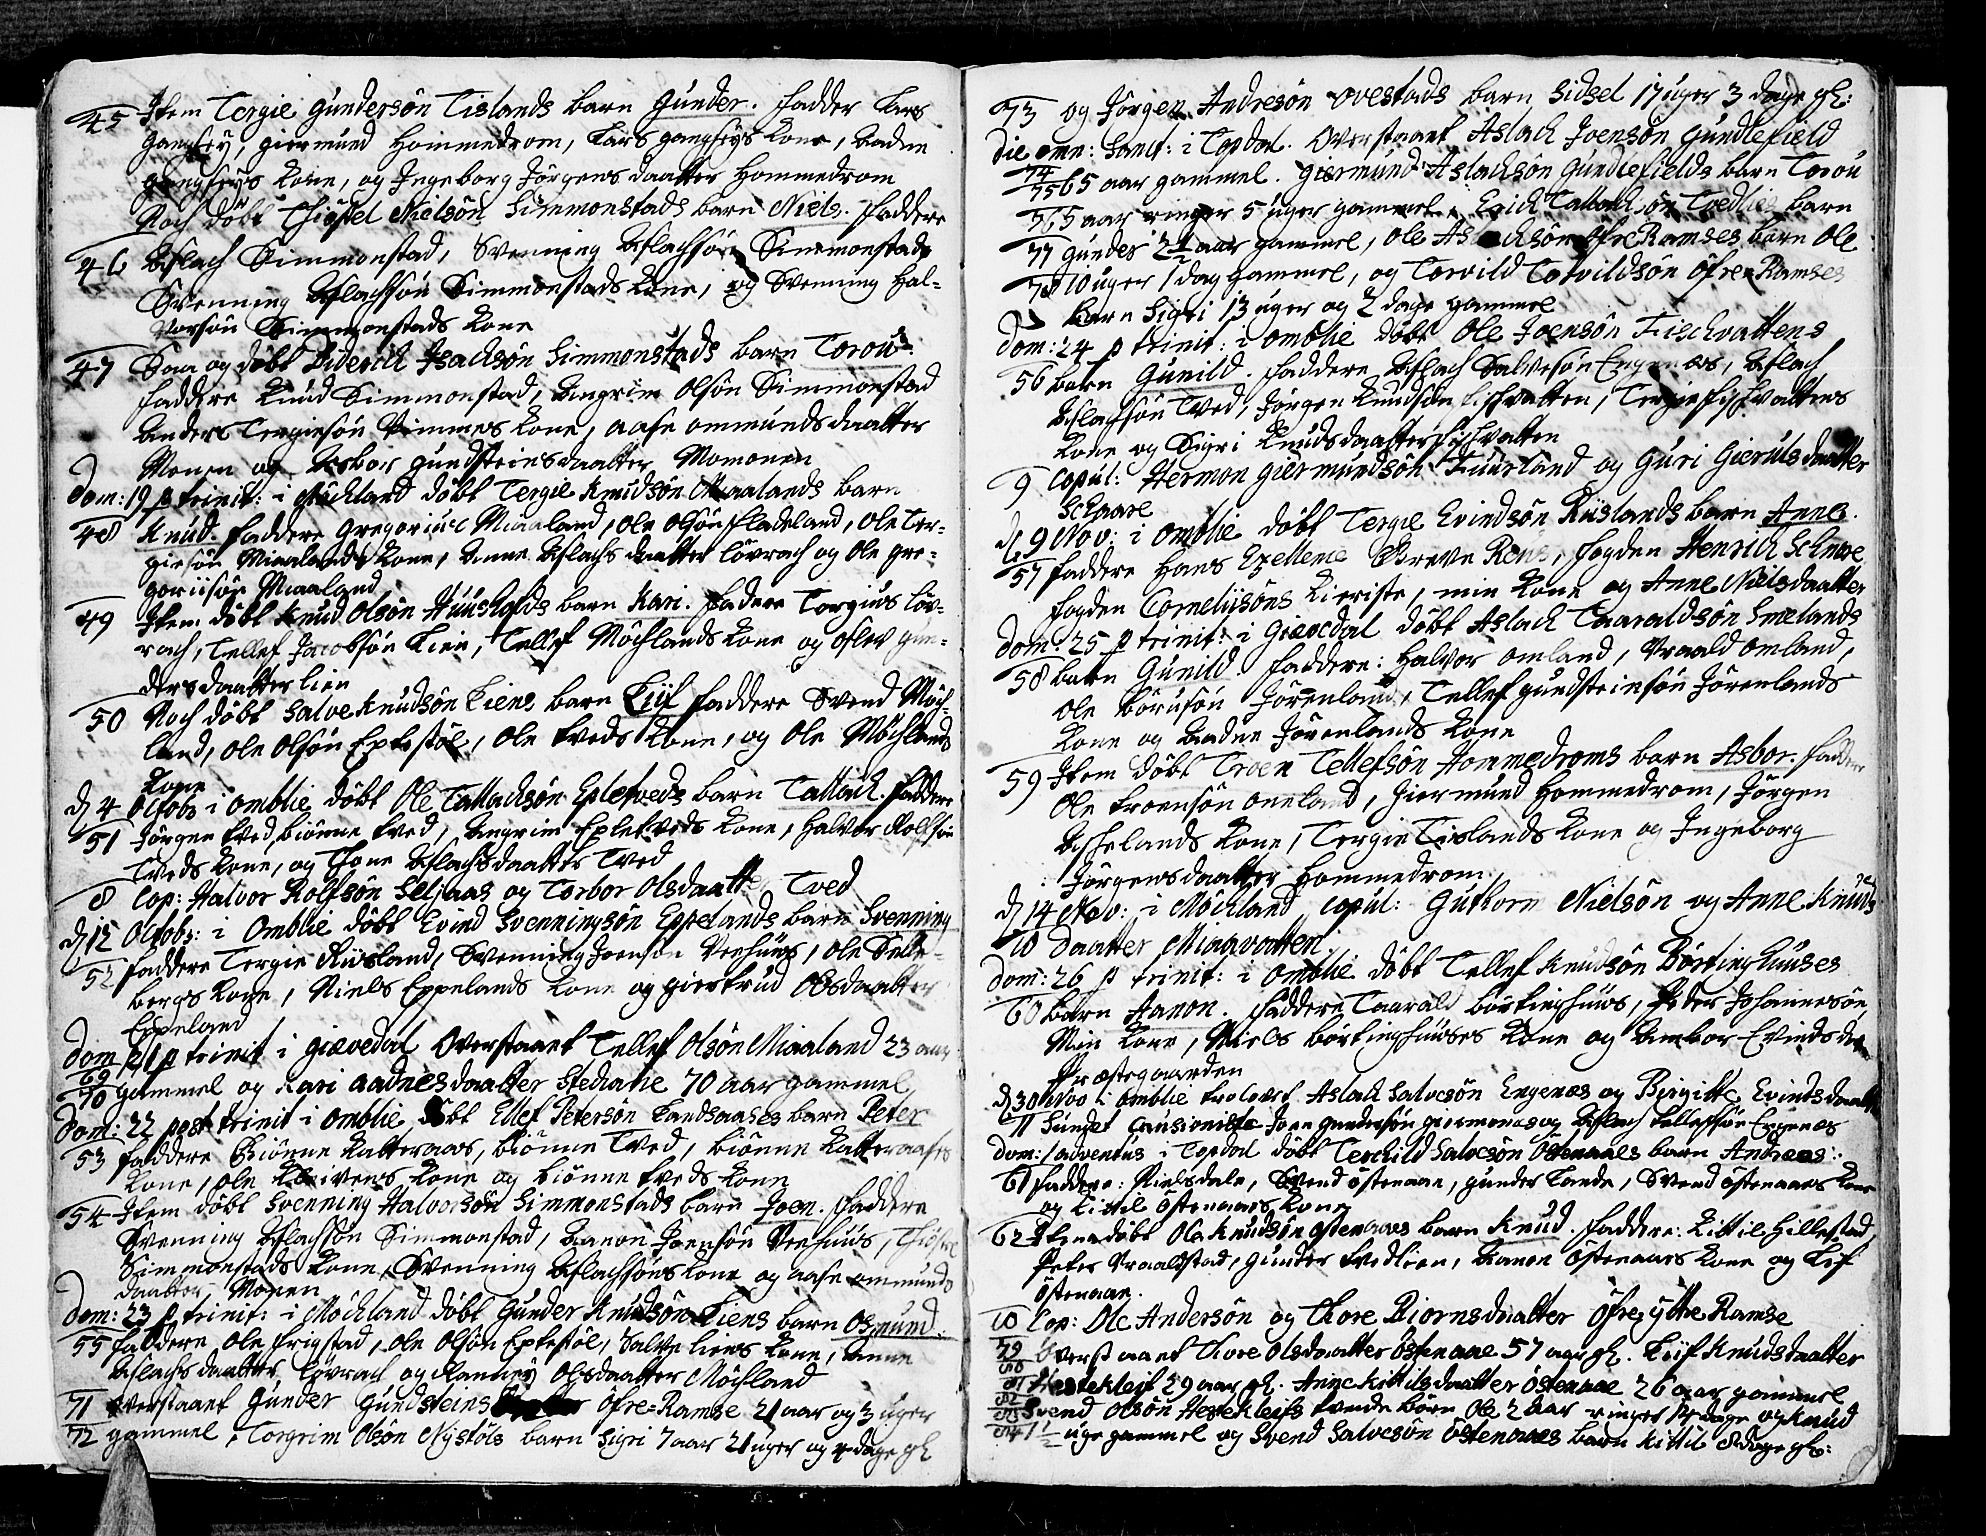 45 Item Tergie Gundersøn Tislands barn Gunder. Fadder Lars
Gangsøy, Giermund Hommedrom, Lars Gangsøys Kone, Aadne
Gangsøys Kone, og Ingeborg Jørgens daatter Hommedrom
Noch døbt Thiøstel Nielsøn Simmonstads barn Niels. Faddere
46 Aslach Simmonstad, Svenning Aslachsøn Simmonstad
Svenning Aslachsøn Simmonstads Kone, og Svenning Hal-
vorsøn Simmonstads Kone
47 Saa og døbt Diderich Isachsøn Simmonstads barn Torou.
Faddere Knud Simmonstad, Angrim Olsøn Simmonstad
Anders Tergiesøn Vimmes Kone, Aase Omunds daatter
Monen og Asbor Gundsteinsdaatter Momonen
Dom: 19 p trinit: i Møchland døbt Tergie Knudsøn Miaalands barn
48 Knud. Faddere Gregorius Miaaland, Ole Olsøn Fladeland, Ole Ter-
giesøn Miaalands Kone, Anne Aslachs daatter Løvrach og Ole Gre-
goriisøn Miaaland
49 Item døbt Knud Olsøn Huusholds barn Kari. Fadere Torgius Løv-
rach, Tellef Jacobsøn Lien, Tellef Møchlands Kone og Oslev Gun-
dersdaatter Lien
50 Noch døbt Salve Knudsøn Liens barn Liif Faddere Svend Møch-
land, Ole Olsøn Eptestøl, Ole Tveds Kone, og Ole Møchlands
Kone
d 4 Octobr i Omblie døbt Ole Tallachsøn Epletveds barn Tallach. Faddere
51 Jørgen Tved, Biønne Tved, Angrim Epletveds Kone, Halvor Rolfsøn
Tveds Kone, og Thone Aslachsdaatter Tved
8 Cop: Halvor Rolfsøn Seljaas og Torbor Olsdaatter Tved
d 12 Octobr: i Omblie døbt Evind Svenningsøn Eppelands barn Svenning
52 Faddere Tergie Riisland, Svenning Joensøn Veehuus, Ole Selle-
bergs Kone, Niels Eppelands Kone og Giertrud Olsdaatter
Eppeland
Dom 21 p trinit i Giævedal Overstaaet Tellef Olsøn Miaaland 23 aar
69
70 gammel og Kari Aadnesdaatter Stedianie 70 aar gammel
Dom: 22 post trinit i Omblie døbt Ellef Petersøn Landsaases barn Peter
53 Faddere Biønne Katteraas, Biønne Tved, Biønne Katteraases
Kone, Ole Kleivens Kone og Biønne Tveds Kone
54 Item døbt Svenning Halvorsøn Simmonstads barn Joen. Faddere
Svenning Aslachsøn Simmonstad, Aanon Joensøn Veehuus, Thiøstel
Simmonstads Kone, Svenning Aslachsøns Kone og Aase Omunds
daatter Monen
Dom: 23 p trinit: i Møchland døbt Gunder Knudsøn Liens barn Osmund.
55 Faddere Ole Frigstad, Ole Olsøn Eptestøl, Salve Liens Kone, Anne
Aslachs daatter Løvrach og Ranney Olsdaatter Møchland
71 Overstaaet Gunder Gundsteins Øfre-Ramse 21 aar og 3 uger
72 gammel, Torgrim Olsøn Nystøls barn Sigri 7 aar 21 uger og dage gl
73 og Jørgen Andresøn Ovestads barn Sidsel 17 uger 3 dage gl:
Die omn: Sanct: i Topdal. Overstaaet Aslach Joensøn Gundlefield
74
75 65 aar gammel. Giermund Aslachsøn Gundlefields barn Torou
76 5 aar ringer 5 uger gammel, Erich Tallachsøn Tvedlies barn
77 Gunder 2 1/2 aar gammel, Ole Aslachsøn Øfre Ramses barn Ole
78 10 uger 1 dag gammel, og Torvild Torvildsøn Øfre Ramses
barn Sigri 13 uger og 2 dage gammel
Dom: 24 p trinit: i Omblie døbt Ole Joensøn Fischvattens
56 barn Gunild. Faddere Aslach Salvesøn Engenæs, Aslach
Aslachsøn Tved, Jørgen Knudsøn Fischvatten, Tergie Fischvattens
Kone og Sigri Knudsdaatter Fischvatten
9 Copul: Hermon Giermundsøn Fuurland og Guri Gieruls daatter
Schaare
d 9 Nov: i Omblie døbt Tergie Evindsøn Riislands barn Anne.
57 Faddere Hans Excellence Greve, Fogden Henrich Schnare
Fogden Corneliisøns Kieriste, min Kone og Anne Nielsdaatter
Dom: 25 p trinit: i Giævedal døbt Aslach Taaraldsøn Smelands
58 barn Gunild. Faddere: Halvor Omland, Vraald Omland,
Ole Børusøn Jørenland, Tellef Gundsteinsøn Jørenlands
Kone og Aadne Jørenlands Kone
59 Item døbt Troen Tellefsøn Hommedroms barn Asbor. Faddere
Ole Troensøn Oneland, Giermund Hommedrom, Jørgen
Ashelands Kone, Tergie Tislands Kone og Ingeborg
Jørgensdaatter Hommedrom
d 14 Nov: i Møchland Copul: Guthorm Nielsøn og Anne Knuds
10 daatter Miaavatten
Dom: 26 p trinit: i Omblie døbt Tellef Knudsøn Børtinghuuses
60 barn Aanon. Faddere Taarald Børtinghuus, Peder Johannesøn,
Min Kone, Niels Børtinghuuses Kone og Anbor Evinds
Præstegaarden
d 30 Nov i Omblie trolovet Aslach Salvesøn Engenæs og Birgitte Evindsdaatter
11 Sunget Cautionister Joen Gundersøn og Aslach Tellefsøn Engenæs
Dom: 1 adventus i Topdal døbt Terchild Salvesøn Østenaaes barn Andreas:
61 Faddere: Nielsdale, Svend Østenaae, Gunder Lande, Svend Østenaaes Kone
og Kittil Østenaaes Kone
62 Item døbt Ole Knudsøn Østenaaes barn Knud. Faddere: Kittil Hillestad,
Peter Vraalstad, Gunder Tvedlien, Aanon Østenaaes Kone og Lif
Østenaae.
10 Cop: Ole Andersøn og Thore Biørnsdaatter Øfre Ramse
79
80 Overstaaet Thore Olsdaatter Østenaae 57 aar gl. Liif Knudsdaatter
81 Hestekleif 29 aar gl. Anne Kittilsdaatter Østenaae 26 aar gammel
82
83 Svend Olsøn Hestekleifs tvende børn Ole 2 aar ringer 14 dage og Knud
84 1 1/2 uge gammel og Svend Salvesøn Østenaaes barn Kittil 8 dage gl: